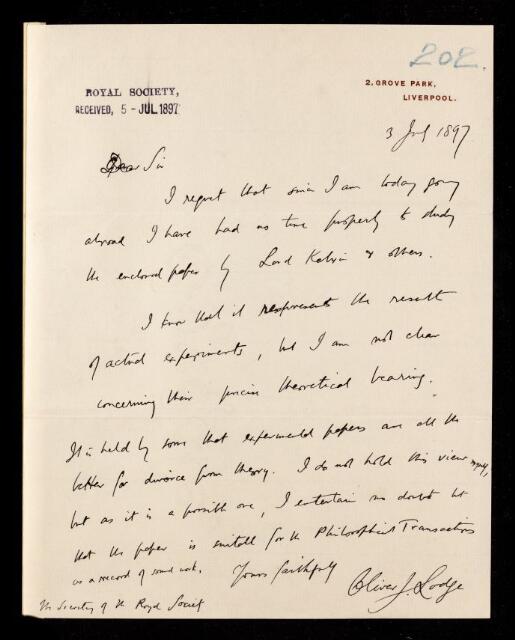 202.
ROYAL SOCIETY,
RECEIVED, 5 - JUL. 1897
2, GROVE PARK,
LIVERPOOL.
3 July 1897
Dear Sir
I regret that since I am today going
abroad I have had no time properly to study
the enclosed paper by Lord Kelvin & others.
I know that it represents the result
of actual experiments, but I am not clear
concerning their precise theoretical bearing.
It is held by some that experimental papers are all the
better for divorce from theory. I do not hold this view myself,
but as it is a possible one, I entertain no doubt but
that the paper is suitable for the Philosophical Transactions
as a record of sound work. Yours faithfully
Oliver J. Lodge
The Secretary of the Royal Society